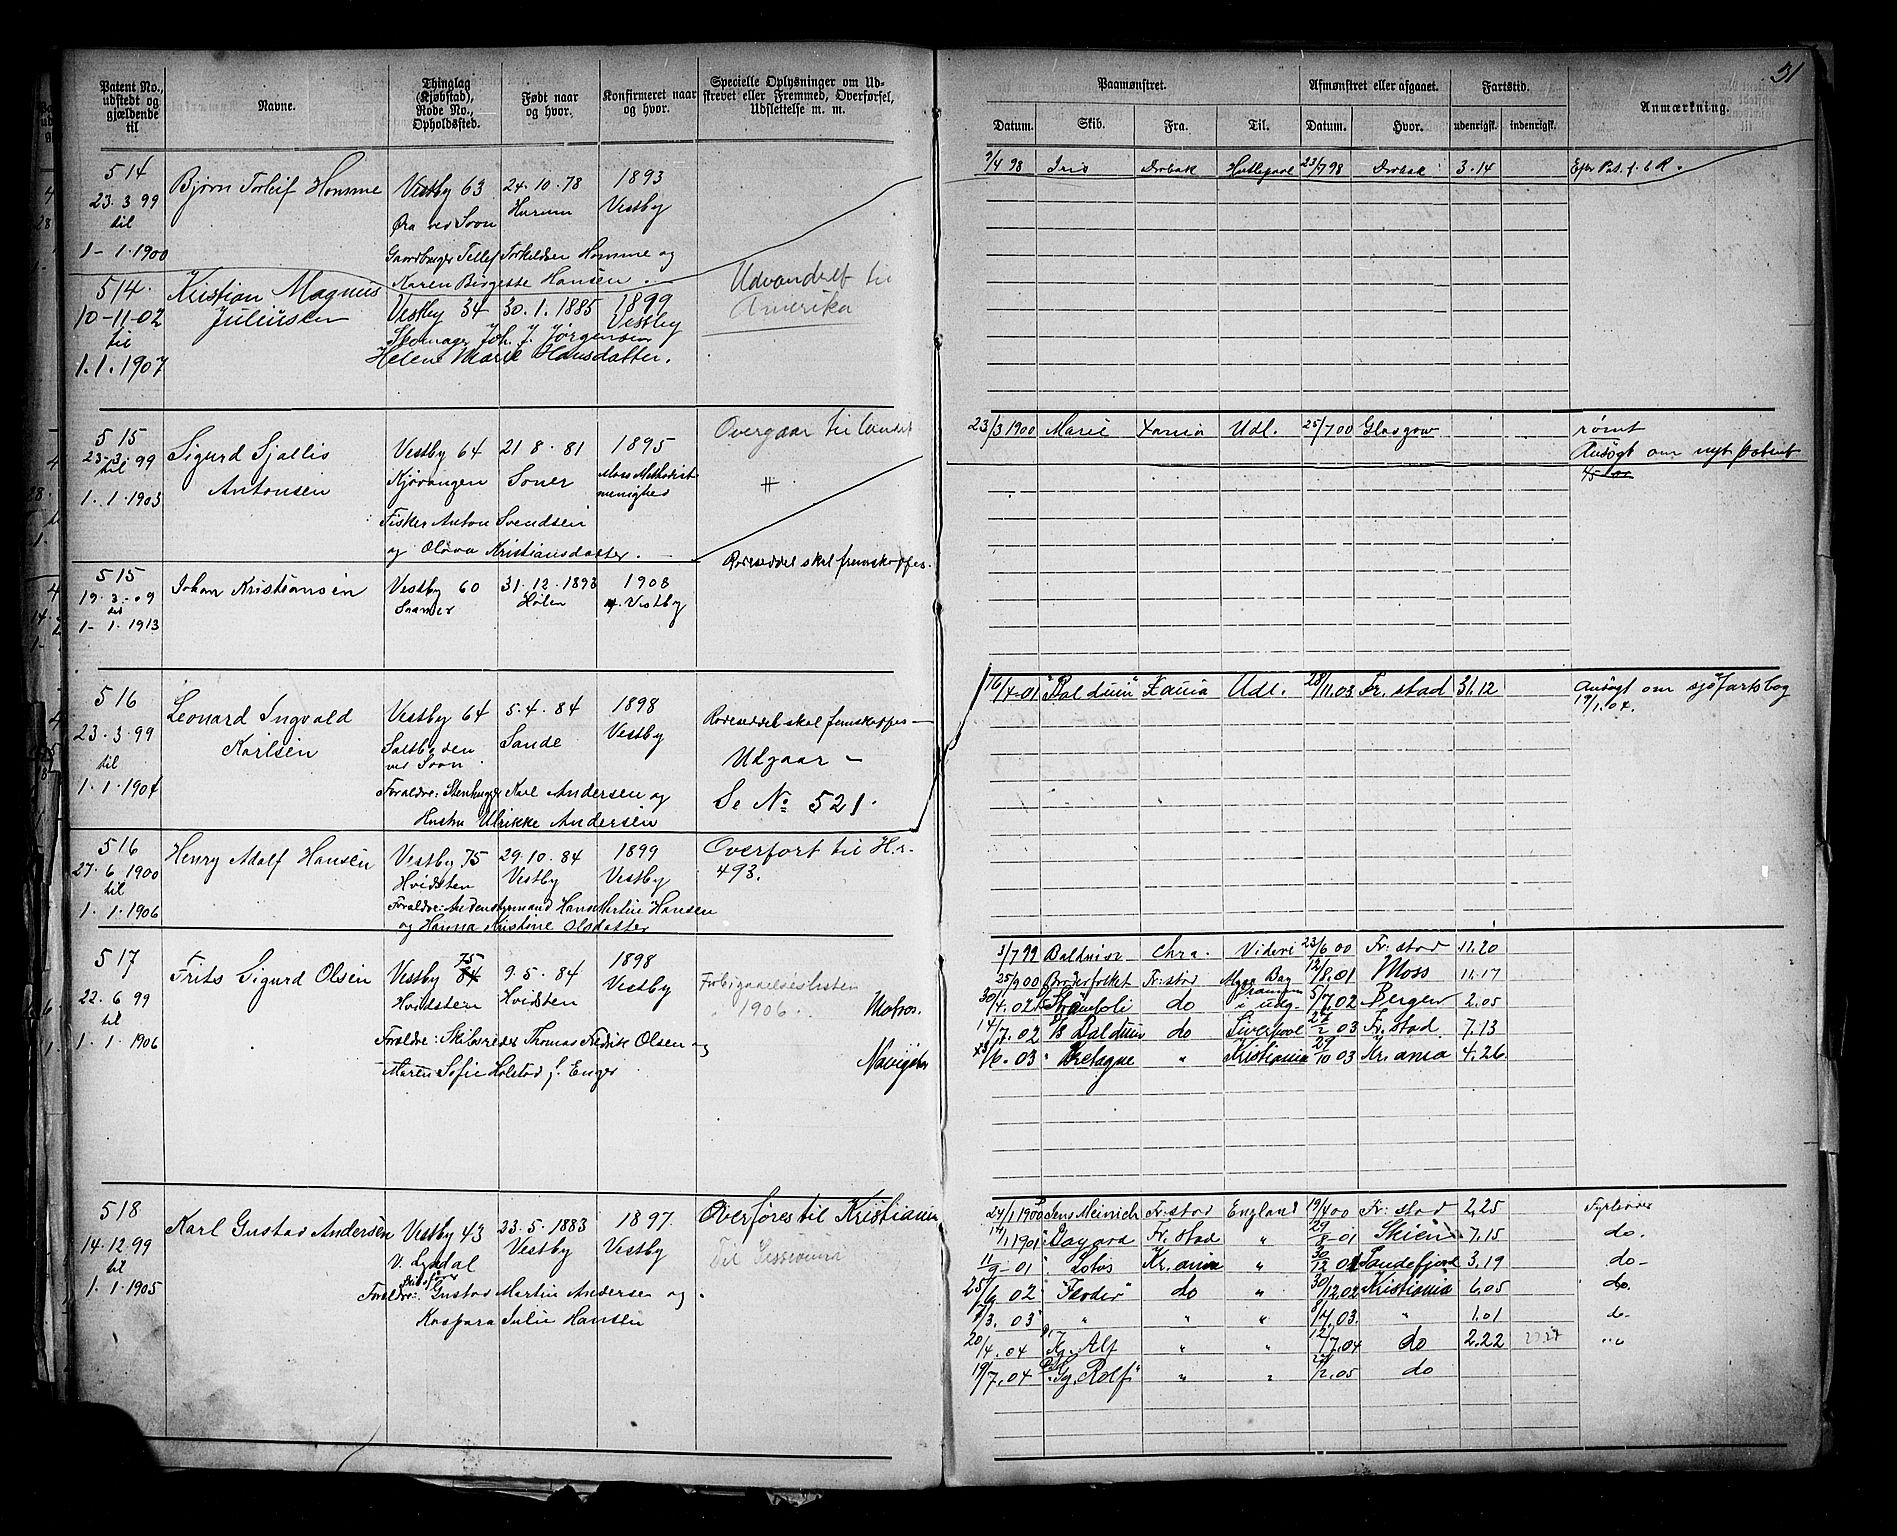 31
Patent No., udstedt og gjældende til
Navne.
Thinglag (Kjøbstad), Rode No., Opholdssted.
Født naar og hvor.
Konfirmeret naar og hvor.
Specielle Oplysninger om Udskrevet eller Fremmed, Overførsel, Udslettelse m. m.
Paamønstret.
Afmønstret eller afgaaet.
Fartstid.
Anmærkning.
Datum. Skib. Fra. Til. Datum. Hvor. udenrigsk. indenrigsk.
514 Bjørn Torleif Homme Vestby 63 24.10.78 1893
23.3.99 Øra ved Soon Hurum Vestby
til
1-1.1900 Gaardbruger Tellef Torkildsen Homme og
Karen Birgette Hansen.
9/4 98 Iris Drøbak 23/7 98 Drøbak 3.14
514. Kristian Magnus Vestby 34 30.1.1885 1899 Udvandret til
10-11-02 Juliussen Vestby Amerika
til Skomager Joh. J. Jørgensen
1.1.1907 Helene Marie Hansdatter.
515 Sigurd Sjallis Vestby 64 21.8.81 1895 Overgaar til landet
23-3-99 Antonsen Kjøvangen Soner Moss Methodist
til menighed
1.1.1903 Fisker Anton Svendsen
og Olava Kristiansdatter.
23/3 1900 Marie Xania Udl. 25/7 00 Glasgow rømt
Ansøgt om nyt patent
515 Johan Kristiansen Vestby 60 31.12.1893 1908 Rodeseddel skal fremskaffes.
19.3.09 Soaner Hølen Vestby
til
1-1.1913
516 Leonard Ingvald Vestby 64 5.4.84 1898 Rodeseddel skal fremskaffes
23.3.99 Karlsen Saltboden Sande Vestby
til ved Soon Udgaar
1.1.1904 Foraldre: Stenhugger Karl Andersen og Se No 521.
Hustru Ulrikke Andersen
16/4-01 "Balduin" Xania Udl. 28/11.03 Fr.stad 31.12 Ansøgt om sjøfartsbog
19/1.04.
516 Henry Adolf Hansen Vestby 75 29.10.84 1899 Overført til Hr.
27.6.1900 Hvidsten Vestby Vestby 493.
til Foraldre: Hans Martin Hansen
1.1.1906 og Hanna Kristine Olsdatter
517 Frits Sigurd Olsen Vestby 75 84 9.5.84 1898 Forbigaaelseslisten
22.6.99 Hvidsten Hvidsten Vestby 1906. Matros.
til
1.1.1906 Foraldre: Skibsreder Thomas Fredrik Olsen og
Maren Sofie Holstad f. Enger
3/7 99 Baldwin Chra. 23/6 00 Fr:stad 11.20
25/9 00 Broderfolket Fr:stad 12/8.01 Moss 11.17
30/4.02 do 5/7.02 Bergen 2.05
14/7.02 Balduin do Liverpool 27/2 03 Fr.stad 7.13
/6.03 Bretagne " Kristiania 29/10 03 Kr.ania 4.26
518 Karl Gustav Andersen Vestby 43 23.5.1883 1897. Overføres til Kristiania
14.12.99 Vestby Vestby
til
1.1.1905 Foraldre: Gustav Martin Andersen og
Kaspara Julie Hansen
24/1 1900 Jens Meinich Fr:stad England 19/4 00 Fr:stad 2.25 Fyrbøder
14/1 1901 Fr.stad " 29/8-01 Skien 7.15 do.
11/9-01 Lotus Kr.ania " 30/12 01 Sandefjord 3.19 do-
25/6 02 do " 30/12.02 Kristiania 6.05 do.
/3.03 " " " 8/4.03. " 1.01 do-
20/4.04 Kg. Alf " " 12/7.04 do 2.22
19/7.04 "Kg. Rolf" " " /2.05 do